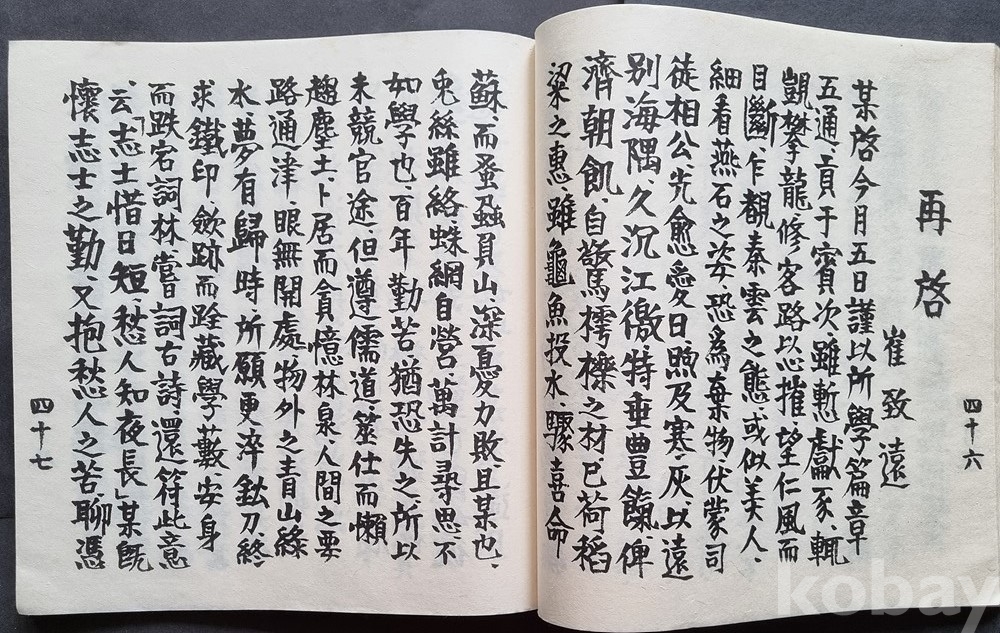 再啓
崔致遠
某啓今月五日謹以所學篇章
五通、貢于賓次雖慙獻豕、輒
覬攀龍修客路心摧、望仁風而
目斷、乍觀秦雲之態、或似美人、
細看燕石之姿、恐爲棄物伏蒙司
徒相公、先愈愛日、煦及寒灰、以遠
別海隅、久沉江徼特垂豊餼、俾
濟朝飢、自驚樗櫟之材已荷稻
粱之惠、雖龜魚投水、驟喜命
四十六
蘇、而蚤蝨負山、深憂力敗、且某也、
兎絲雖絡、蛛網自營、萬計尋思、不
如學也、百年勤苦、猶恐失之、所以
未競官途、但遵儒道、筮仕而懶
趨塵土、卜居而貪憶林泉、人間之要
路通津、眼無開處、物外之靑山綠
水夢有歸時、所願更、淬鈆刀、終
求鐵印、斂跡而跧藏學藪、安身
而跌宕詞林、嘗詞古詩、還符此意
云、「志士惜日短、愁人知夜長」某旣
懷志士之勤又抱愁人之苦、聊憑
四十七
kobay